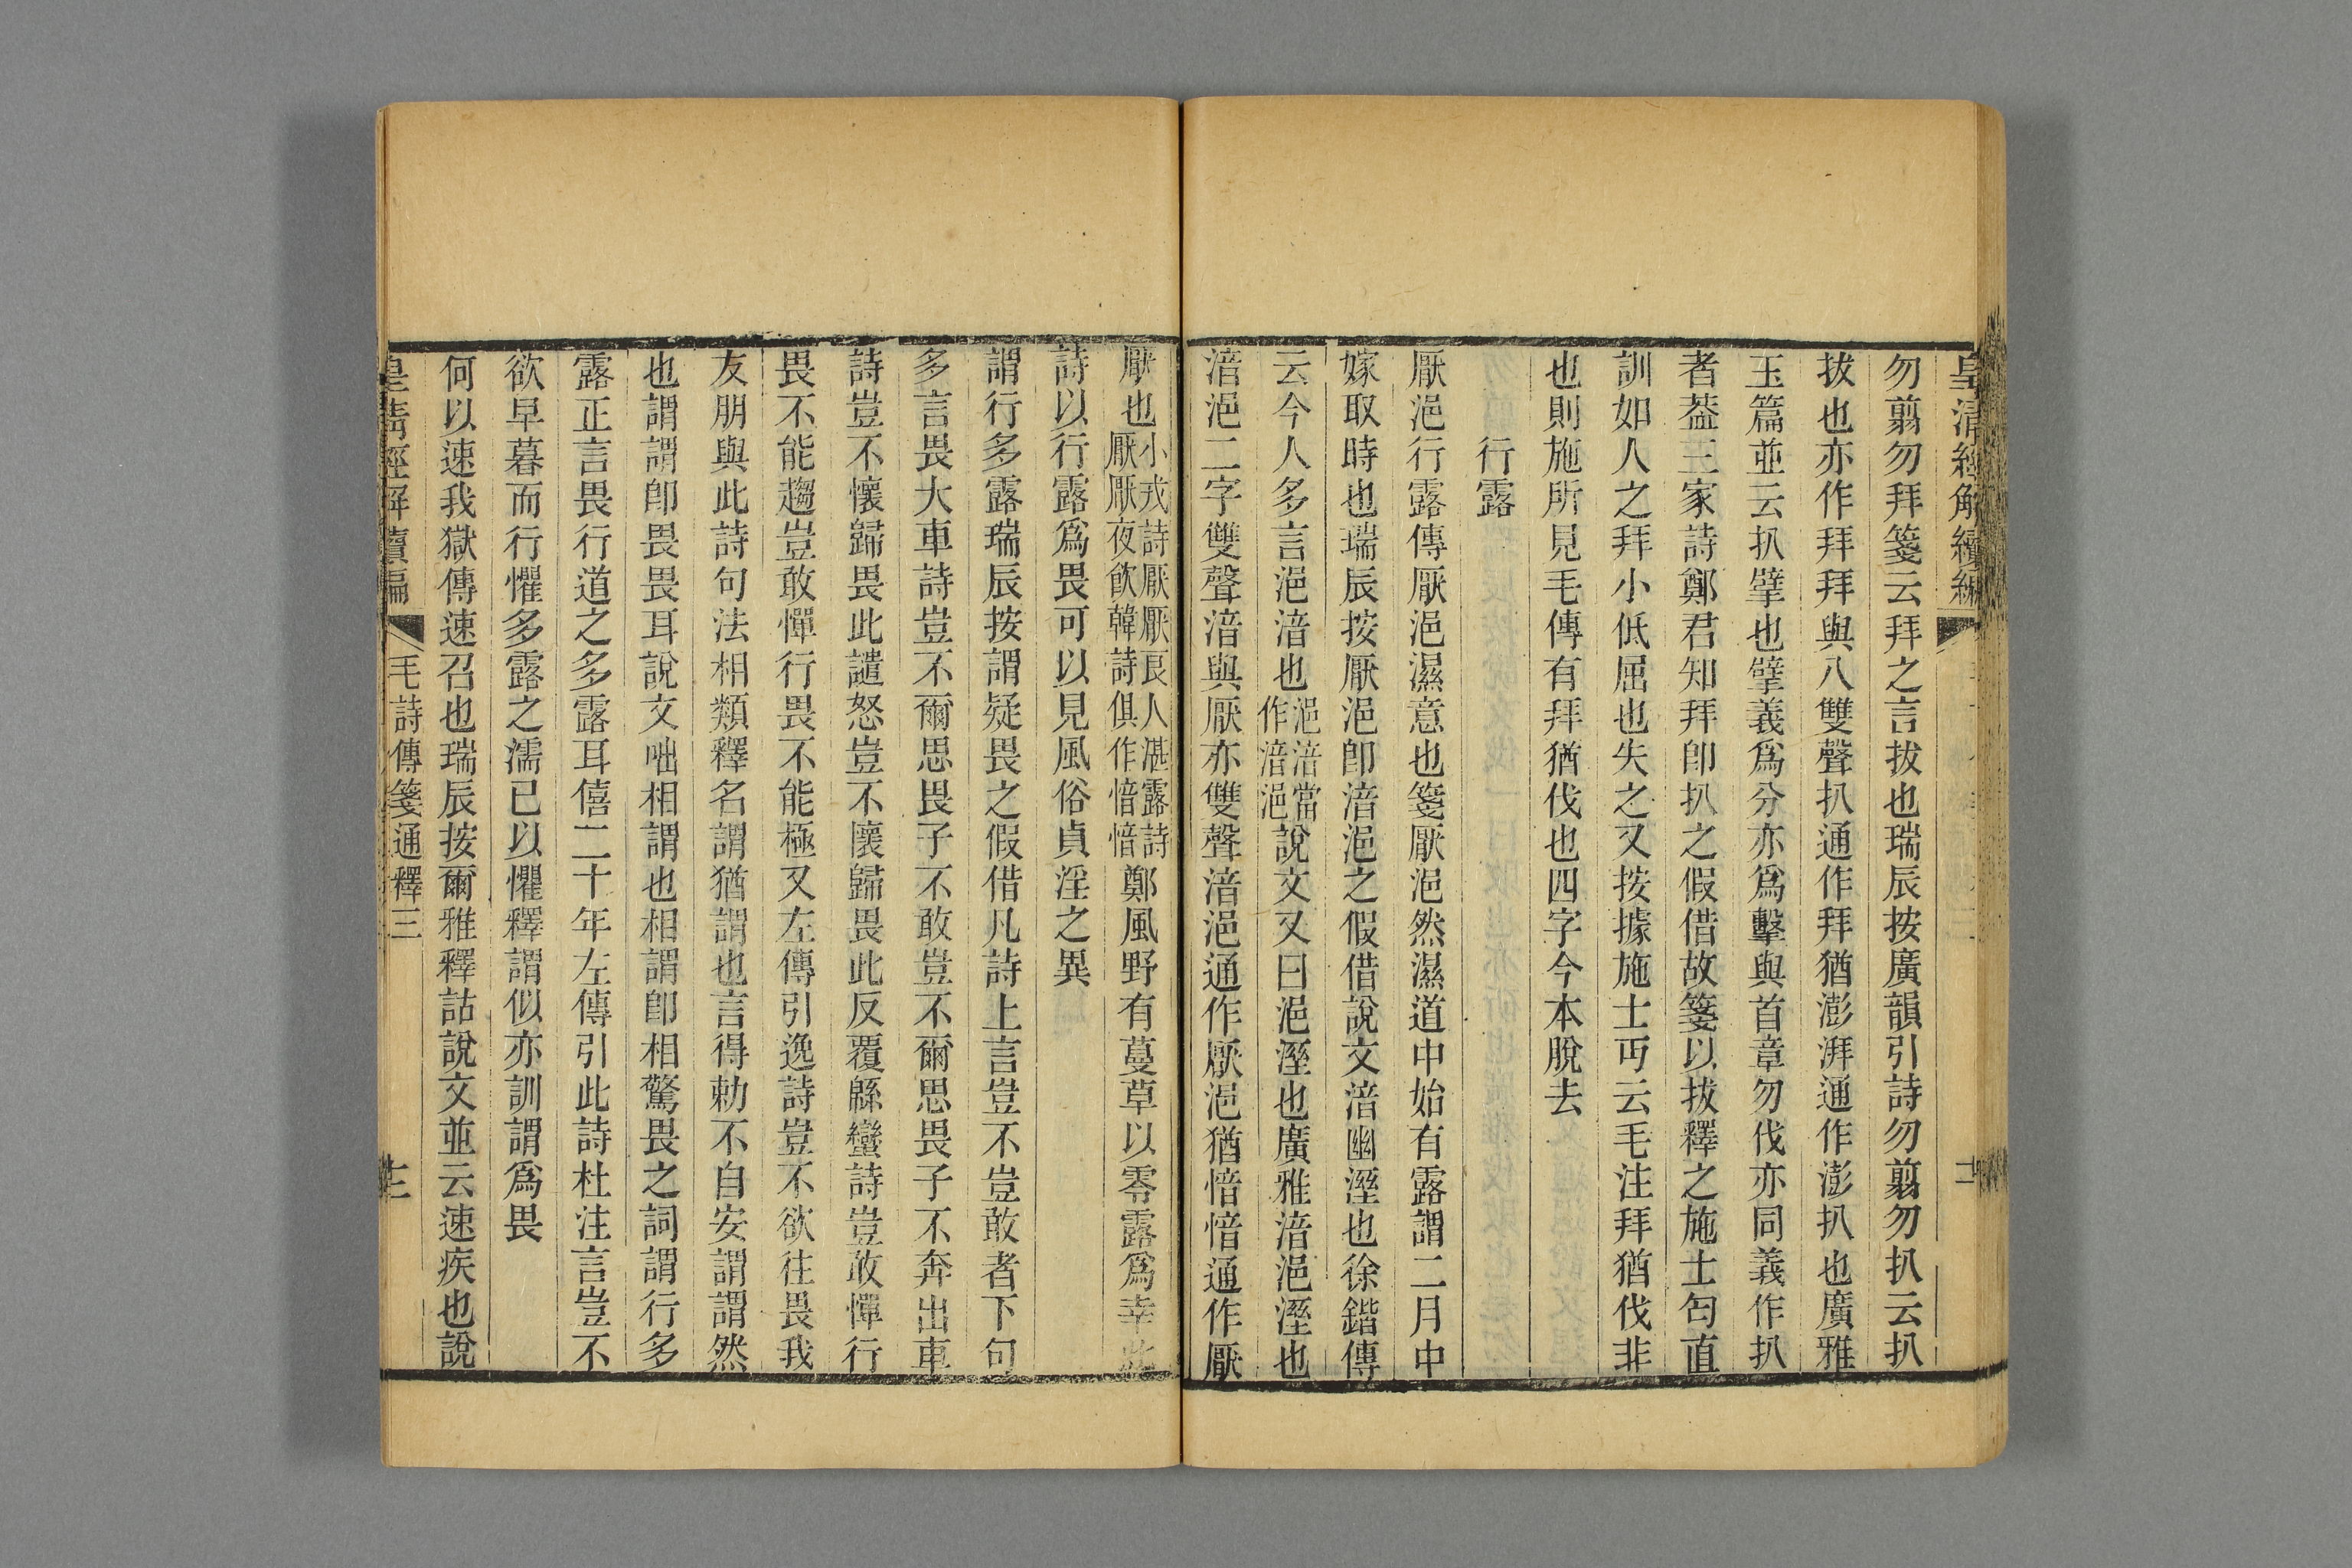 皇清經解續編
勿翦勿拜箋云拜之言拔也瑞辰按廣韻引詩勿翦勿扒云扒
拔也亦作拜拜與八雙聲扒通作拜猶澎湃通作澎扒也廣雅
玉篇並云扒擘也擘義爲分亦爲擊與首章勿伐亦同義作扒
者葢三家詩鄭君知拜卽扒之假借故箋以拔釋之施士匄直
訓如人之拜小低屈也失之又按據施士丏云毛注拜猶伐非
也則施所見毛傳有拜猶伐也四字今本脫去
行露
厭浥行露傳厭浥濕意也箋厭浥然濕道中始有露謂二月中
嫁取時也瑞辰按厭浥卽湆浥之假借說文湆幽溼也徐鍇傳
云今人多言浥湆也浥湆當作湆浥說文又曰浥溼也廣雅湆浥溼也
湆浥二字雙聲湆與厭亦雙聲湆浥通作厭浥猶愔愔通作厭
厭也小戎詩厭厭良人湛露詩厭厭夜飮韓詩俱作愔愔鄭風野有蔓草以零露爲幸此
詩以行露爲畏可以見風俗貞淫之異
謂行多露瑞辰按謂疑畏之假借凡詩上言豈不豈敢者下句
多言畏大車詩豈不爾思畏子不敢豈不爾思畏子不奔出車
詩豈不懷歸畏此譴怒豈不懷歸畏此反覆緜蠻詩豈敢憚行
畏不能趨豈敢憚行畏不能極又左傳引逸詩豈不欲往畏我
友朋與此詩句法相類釋名謂猶謂也言得勅不自安謂謂然
也謂謂卽畏畏耳說文㖞相謂也相謂卽相驚畏之詞謂行多
露正言畏行道之多露耳僖二十年左傳引此詩杜注言豈不
欲早暮而行懼多露之濡己以懼釋謂似亦訓謂爲畏
何以速我獄傳速召也瑞辰按爾雅釋詁說文並云速疾也說
皇淸經解續編 毛詩傳箋通釋三